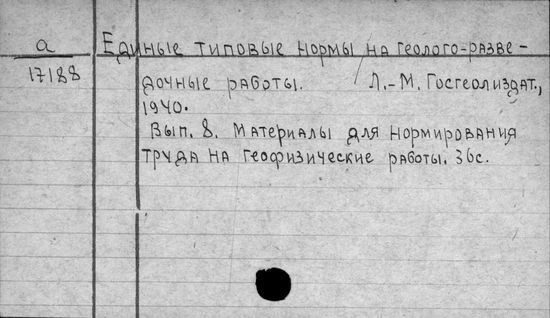 а
17188
Единые типовые нормы на геолого-разве-
дочные работы. Л.-М. Госгеолиздат.,
1940.
Вып. 8. Материалы для нормирования
труда на геофизические работы. 36с.